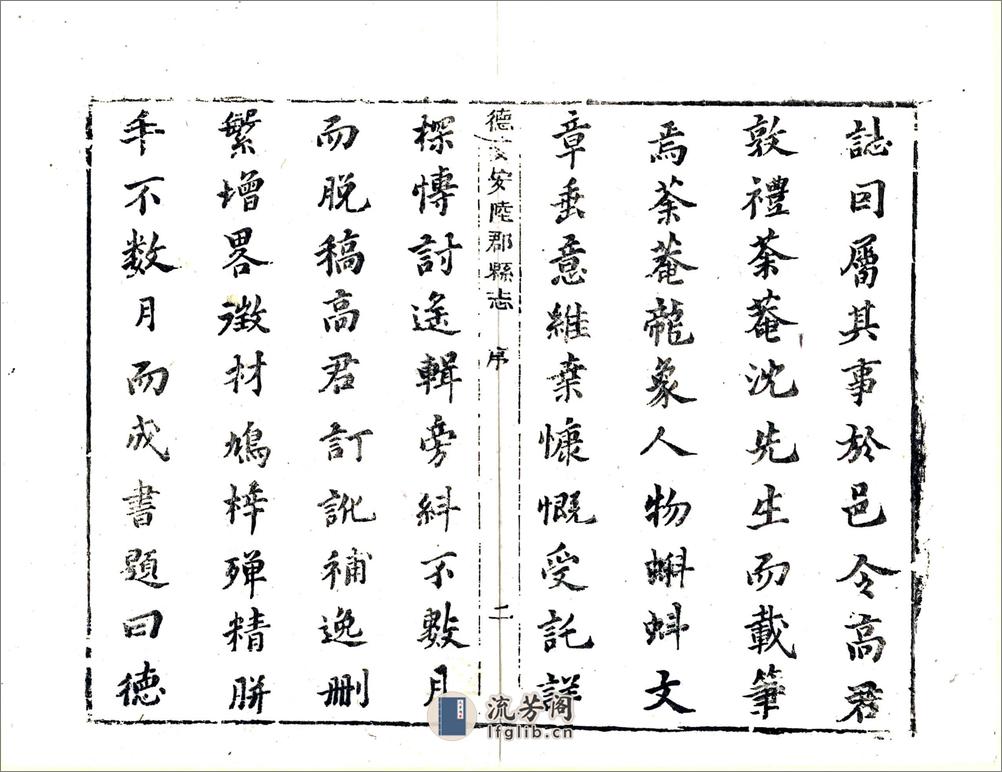 誌囙屬其事於邑令高君
敦禮荼菴沈先生而載筆
焉荼菴龍象人物蝌蚪文
章垂意維桑慷慨受託詳
德安安陸郡縣志 序 二
探愽討遙輯旁紏不數月
而脫稿高君訂訛補逸删
繁增畧徴材鳩梓殫精胼
手不数月而成書題曰德
流芳阁
lfglib.cn